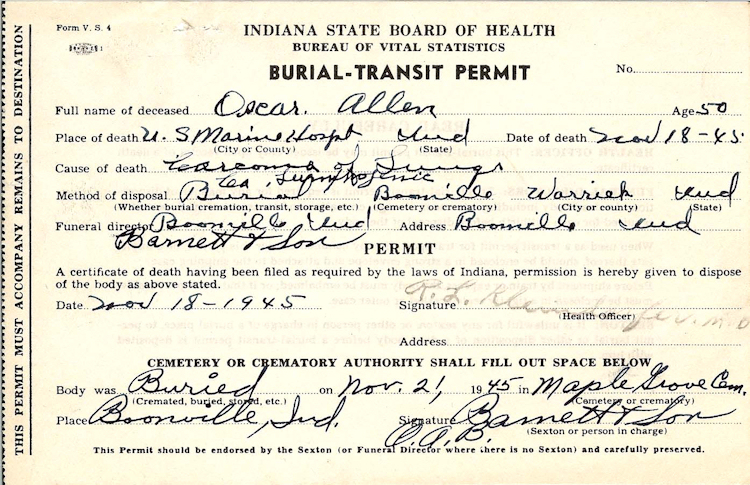 Form V. S. 4
INDIANA STATE BOARD OF HEALTH
BUREAU OF VITAL STATISTICS
BURIAL-TRANSIT PERMIT
No.
Full name of deceased Oscar. Allen Age 50
Place of death U. S Marine Hospt Ind Date of death Nov 18-45
(City or County) (State)
Cause of death of Lungs
Method of disposal Burial Boonville Warrick Ind
(Whether burial cremation, transit, storage, etc.) (Cemetery or crematory) (City or county) (State)
Funeral director Boonville Ind Address Boonville Ind
Barnett & Son
PERMIT
A certificate of death having been filed as required by the laws of Indiana, permission is hereby given to dispose
of the body as above stated.
Date Nov 18-1945 Signature M.D
(Health Officer)
Address
CEMETERY OR CREMATORY AUTHORITY SHALL FILL OUT SPACE BELOW
Body was Buried on Nov. 21, 1945 in Maple Grove Cem.
(Cremated, buried, stored, etc.) (Cemetery or crematory)
Place Boonville, Ind. Signature Barnett & Son
O.A.B. (Sexton or person in charge)
This Permit should be endorsed by the Sexton (or Funeral Director where there is no Sexton) and carefully preserved.
THIS PERMIT MUST ACCOMPANY REMAINS TO DESTINATION